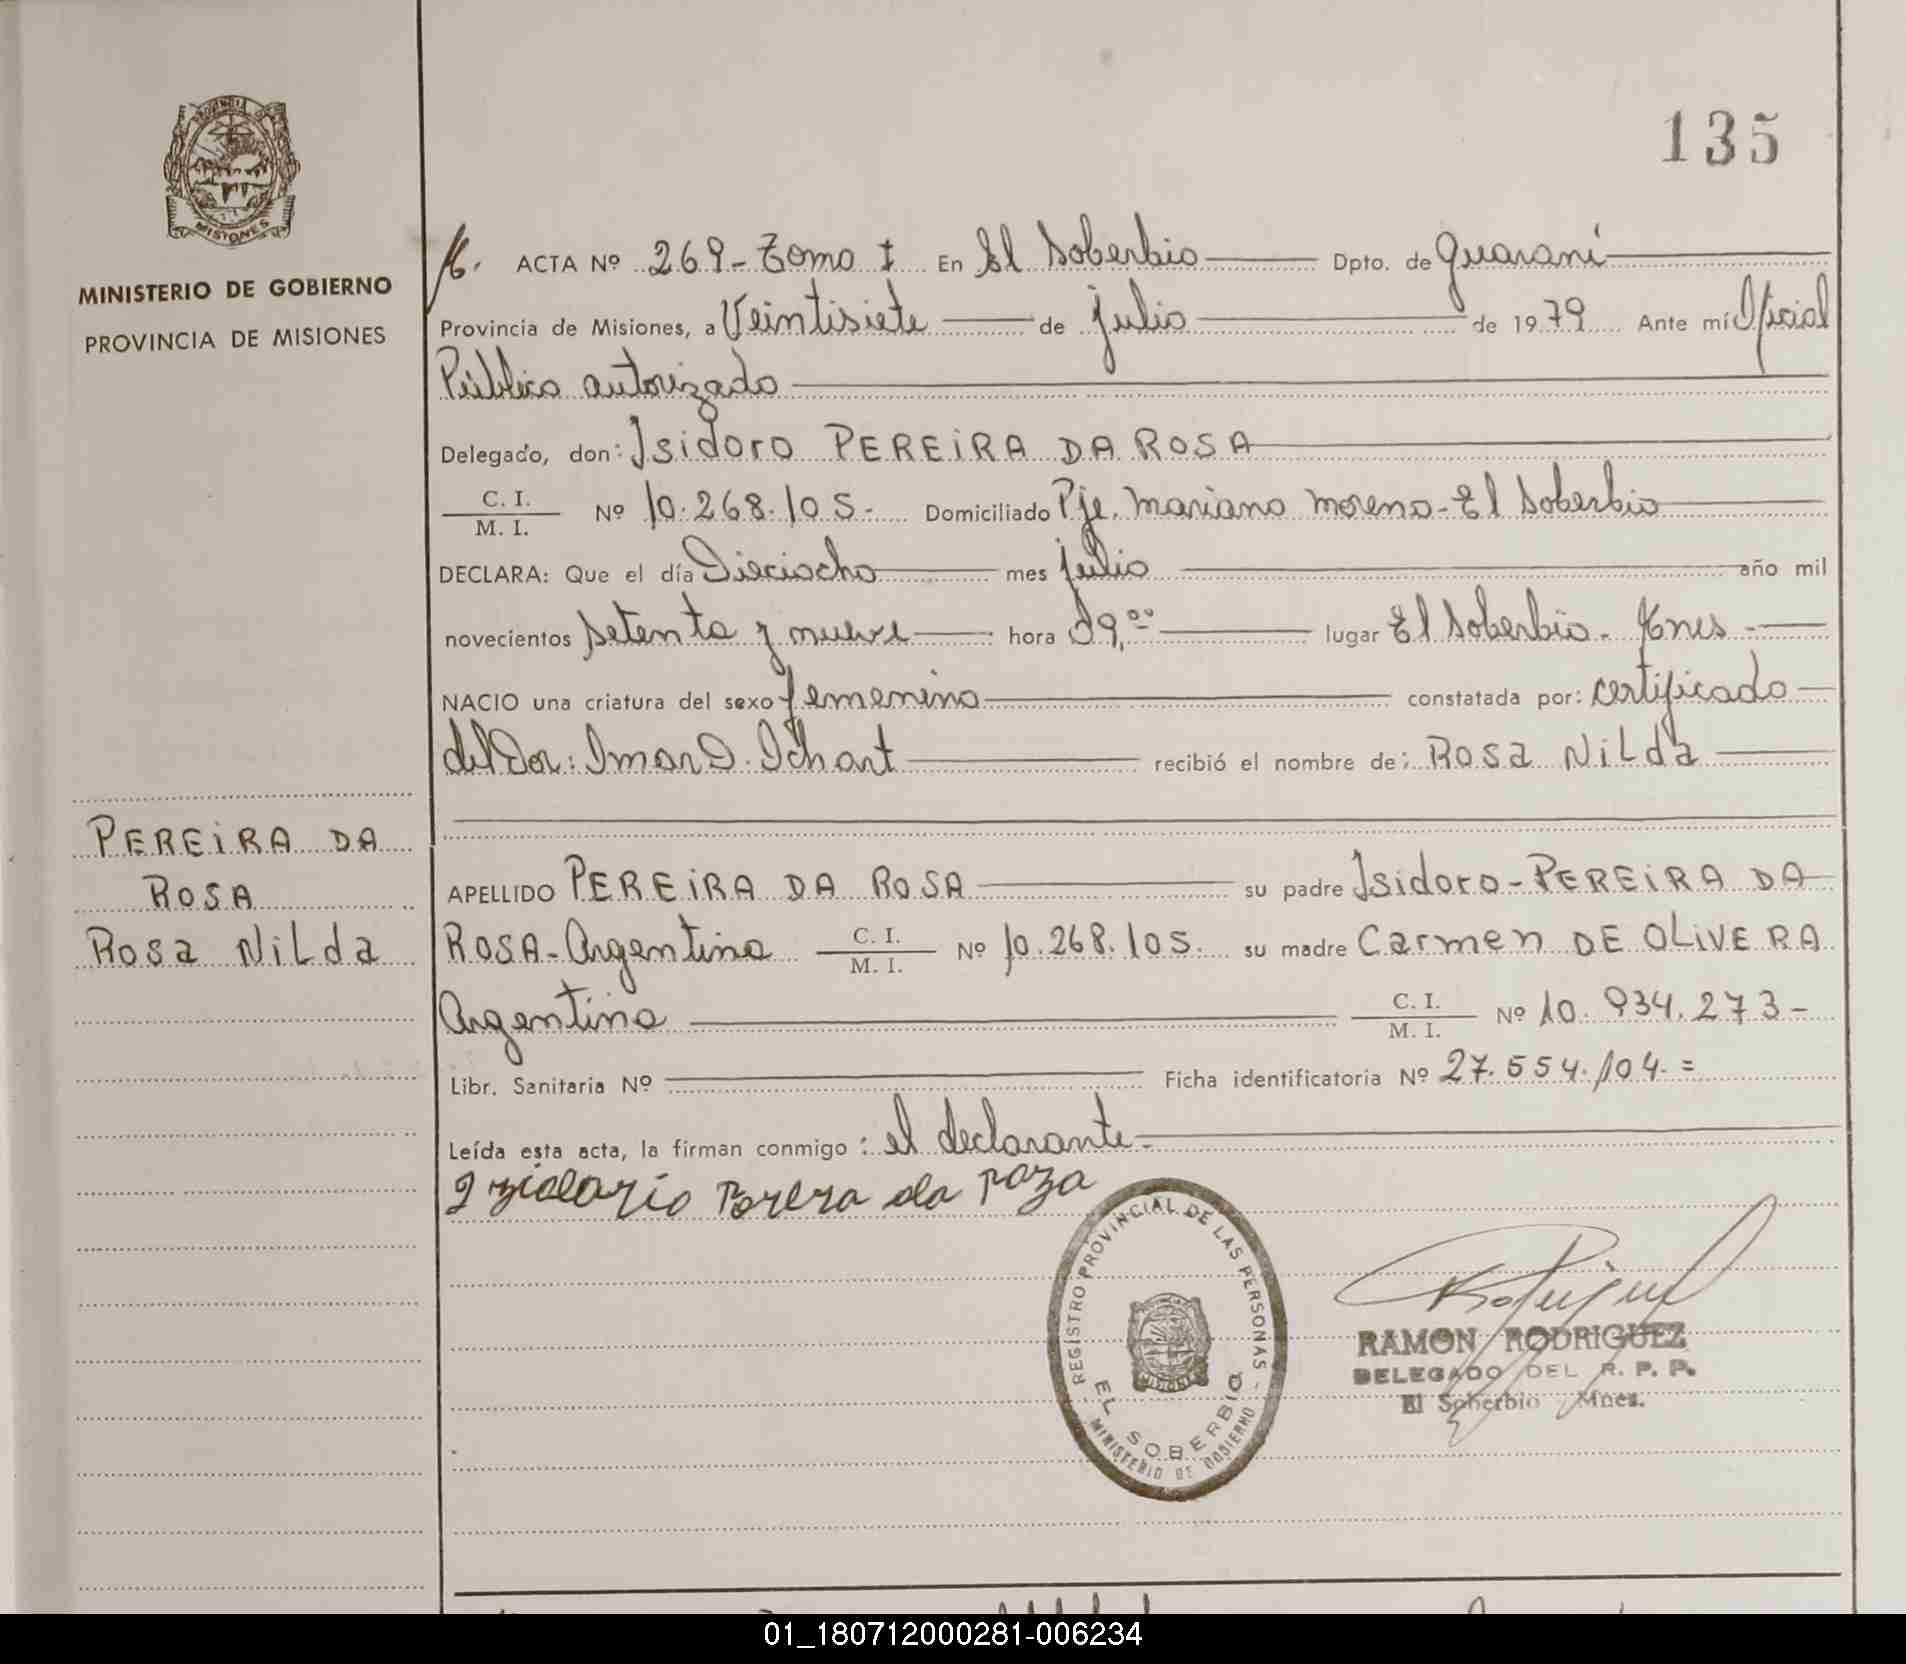 135
PROVINCIA
MISIONES
MINISTERIO DE GOBIERNO
PROVINCIA DE MISIONES
ACTA Nº 269- Tomo I En El Soberbio Dpto. de Guaraní
Provincia de Misiones, a Veintisiete de julio de 1979 Ante mí Oficial
Público autorizado
Delegado, don: Isidoro PEREIRA DA ROSA
C. I.
M. I. Nº 10.268.105.- Domiciliado Pje. Mariano Moreno - El Soberbio
DECLARA: Que el día Dieciocho mes julio año mil
novecientos setenta y nueve hora 09,00 lugar El Soberbio - Mnes -
NACIO una criatura del sexo femenino constatada por: certificado
del Dor: Omar D. Ichart recibió el nombre de: ROSA NILDA
PEREIRA DA
ROSA
ROSA NILDA
APELLIDO PEREIRA DA ROSA su padre Isidoro - PEREIRA DA
ROSA - Argentino C. I.
M. I. Nº 10.268.105. su madre Carmen DE OLIVERA
Argentina C. I.
M. I. Nº 10.934.273-
Libr. Sanitaria Nº Ficha identificatoria Nº 27.554.104.=
Leída esta acta, la firman conmigo: el declarante -
Izidorio Porera da Roza
REGISTRO PROVINCIAL DE LAS PERSONAS -
MISIONES
EL SOBERBIO
MINISTERIO DE GOBIERNO
RAMON RODRIGUEZ
DELEGADO DEL R. P. P.
El Soberbio Mnes.
01_180712000281-006234